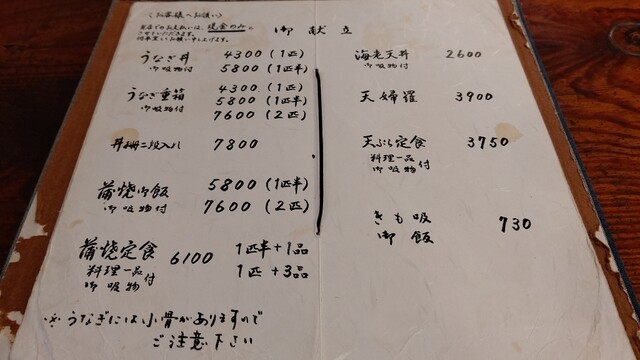 (お客様へお願い)
当店でのお支払いは、現金のみと
させていただきます。
何卒宜しくお願い申し上げます。
御献立
うなぎ丼 4300 (1匹)
御吸物付 5800 (1匹半)
うなぎ重箱 4300 (1匹)
御吸物付 5800 (1匹半)
7600 (2匹)
丼柵二段入り 7800
蒲焼御飯 5800 (1匹半)
御吸物付 7600 (2匹)
蒲焼定食 6100 1匹半+1品
料理一品付 1匹+3品
御吸物
※うなぎには小骨がありますので
ご注意下さい
海老天丼 2600
御吸物付
天婦羅 3900
天ぷら定食 3750
料理一品付
御吸物
きも吸 730
御飯